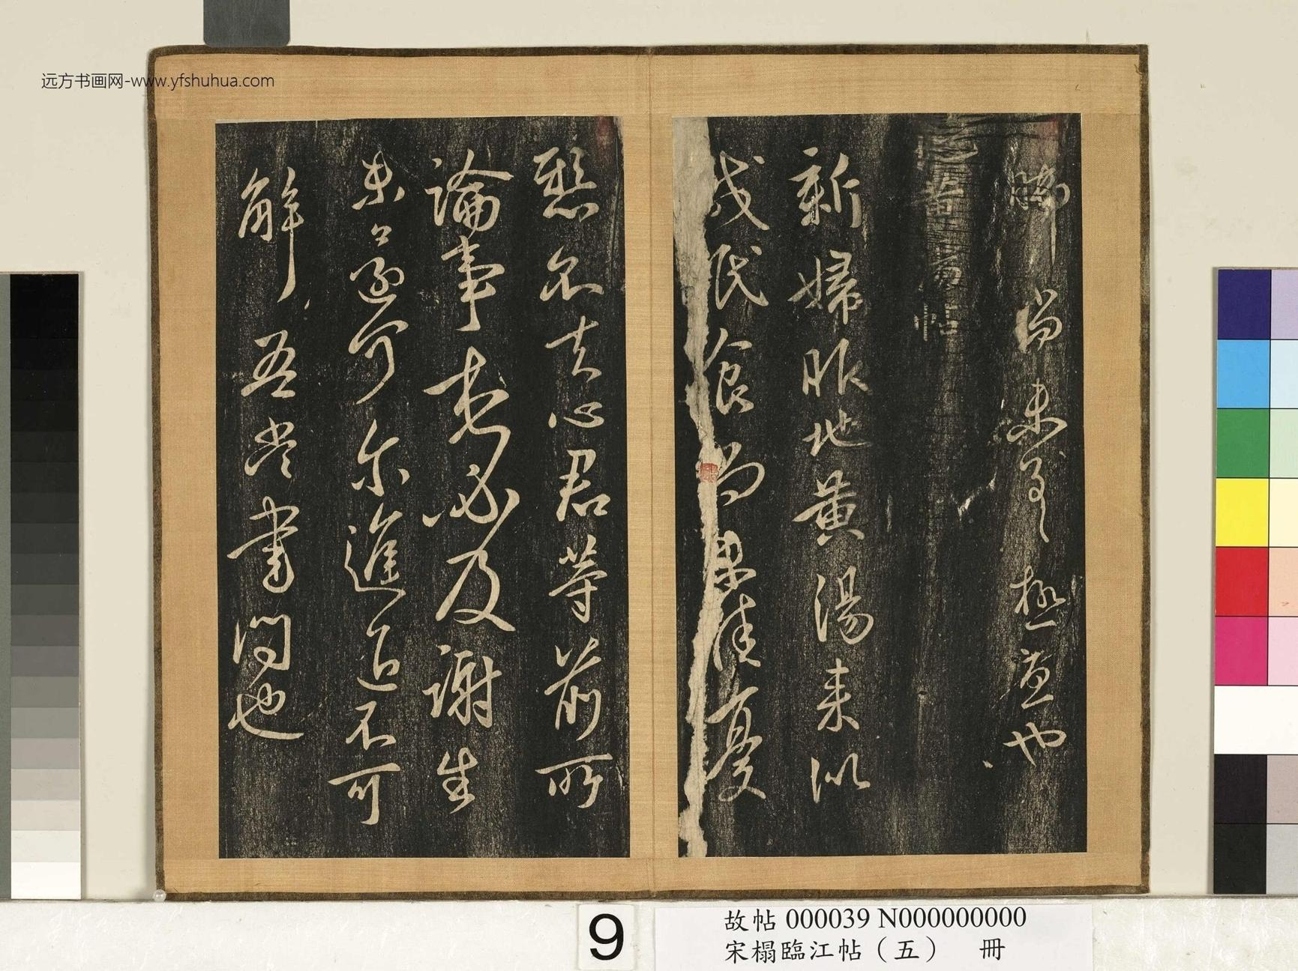 远方书画网-www.yfshuhua.com
尚未 極 也
新婦服地黄湯来似
減眠食尚未佳憂
懸不去心君等前所
論事想必及謝生
未還可尔進退不可
解吾當書問也
9
故帖 000039 N000000000
宋榻臨江帖（五） 冊